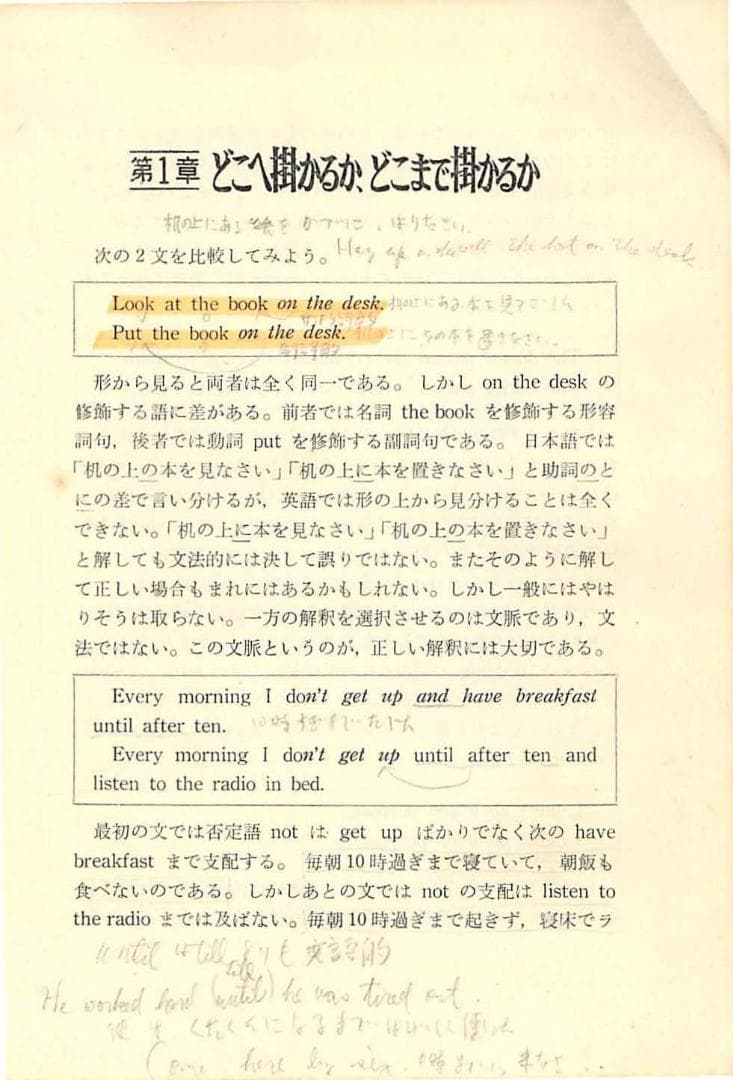 第1章 どこへ掛かるか、どこまで掛かるか
机の上にある
次の2文を比較してみよう。
Look at the book on the desk. 机の上にある本を見て
Put the book on the desk. この本を置きなさい
形から見ると両者は全く同一である。 しかし on the desk の
修飾する語に差がある。前者では名詞 the book を修飾する形容
詞句，後者では動詞 put を修飾する副詞句である。 日本語では
「机の上の本を見なさい」「机の上に本を置きなさい」と助詞のと
にの差で言い分けるが，英語では形の上から見分けることは全く
できない。「机の上に本を見なさい」「机の上の本を置きなさい」
と解しても文法的には決して誤りではない。またそのように解し
て正しい場合もまれにはあるかもしれない。しかし一般にはやは
りそうは取らない。一方の解釈を選択させるのは文脈であり，文
法ではない。この文脈というのが，正しい解釈には大切である。
Every morning I don't get up and have breakfast
until after ten.
Every morning I don't get up until after ten and
listen to the radio in bed.
最初の文では否定語 not は get up ばかりでなく次の have
breakfast まで支配する。 毎朝10時過ぎまで寝ていて， 朝飯も
食べないのである。 しかしあとの文では not の支配は listen to
the radio までは及ばない。毎朝10時過ぎまで起きず，寝床でラ
until は till よりも 文語的
till
He worked hard (until) he was tired out.
彼は くたくたになるまで 働いた
Come here by six.